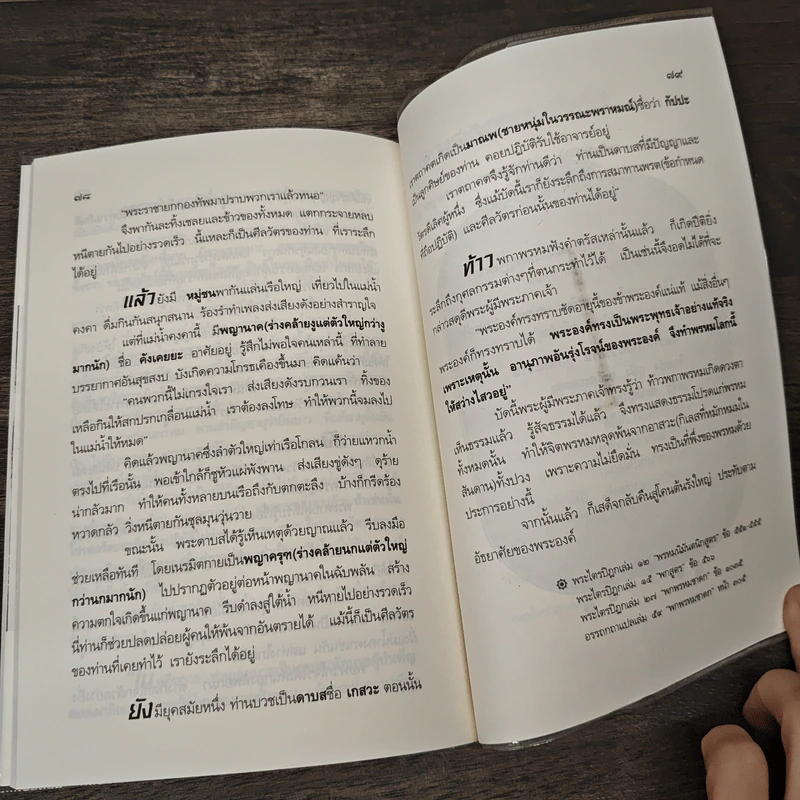 ๗๘
"พระราชายกกองทัพมาปราบพวกเราแล้วหนอ"
จึงพากันละทิ้งเชลยและข้าวของทั้งหมด แตกกระจายหลบ
หนีตายกันไปอย่างรวดเร็ว นี้แหละก็เป็นศีลวัตรของท่าน ที่เราระลึก
ได้อยู่
แล้วยังมี หมู่ชนพากันแล่นเรือใหญ่ เที่ยวไปในแม่น้ำ
คงคา ดื่มกินกันสนุกสนาน ร้องรำทำเพลงส่งเสียงดังอย่างสำราญใจ
แต่ที่แม่น้ำคงคานี้ มีพญานาค(ร่างคล้ายงูแต่ตัวใหญ่กว่างู
มากนัก) ชื่อ คังเคยยะ อาศัยอยู่ รู้สึกไม่พอใจคนเหล่านี้ ที่ทำลาย
บรรยากาศอันสุขสงบ บังเกิดความโกรธเคืองขึ้นมา คิดแค้นว่า
"คนพวกนี้ไม่เกรงใจเรา ส่งเสียงดังรบกวนเรา ทิ้งของ
เหลือกินให้สกปรกเกลื่อนแม่น้ำ เราต้องลงโทษ ทำให้พวกนี้จมลงไป
ในแม่น้ำให้หมด"
คิดแล้วพญานาคซึ่งลำตัวใหญ่เท่าเรือโกลน ก็ว่ายแหวกน้ำ
ตรงไปที่เรือนั้น พอเข้าใกล้ก็ชูหัวแผ่พังพาน ส่งเสียงขู่ดังๆ ดุร้าย
น่ากลัวมาก ทำให้คนทั้งหลายบนเรือถึงกับตกตะลึง บ้างก็กรีดร้อง
หวาดกลัว วิ่งหนีตายกันชุลมุนวุ่นวาย
ขณะนั้น พระดาบสได้รู้เห็นเหตุด้วยญาณแล้ว รีบลงมือ
ช่วยเหลือทันที โดยเนรมิตกายเป็นพญาครุฑ(ร่างคล้ายนกแต่ตัวใหญ่
กว่านกมากนัก) ไปปรากฏตัวอยู่ต่อหน้าพญานาคในฉับพลัน สร้าง
ความตกใจเกิดขึ้นแก่พญานาค รีบดำลงสู่ใต้น้ำ หนีหายไปอย่างรวดเร็ว
นี่ท่านก็ช่วยปลดปล่อยผู้คนให้พ้นจากอันตรายได้ แม้นี้ก็เป็นศีลวัตร
ของท่านที่เคยทำไว้ เรายังระลึกได้อยู่
ยังมียุคสมัยหนึ่ง ท่านบวชเป็นดาบสชื่อ เกสวะ ตอนนั้น
๗๙
เราตถาคตเกิดเป็นมาณพ(ชายหนุ่มในวรรณะพราหมณ์)ชื่อว่า กัปปะ
เป็นลูกศิษย์ของท่าน คอยปฏิบัติรับใช้อาจารย์อยู่
เราตถาคตจึงรู้จักท่านดีว่า ท่านเป็นดาบสที่มีปัญญาและ
วัตรดีเลิศผู้หนึ่ง ซึ่งแม้บัดนี้เราก็ยังระลึกถึงการสมาทานพรต(ข้อกำหนด
ที่ถือปฏิบัติ) และศีลวัตรก่อนนั้นของท่านได้อยู่"
ท้าวพกาพรหมฟังคำตรัสเหล่านั้นแล้ว ก็เกิดปีติยิ่ง
ระลึกถึงกุศลกรรมต่างๆที่ตนกระทำไว้ได้ เป็นเช่นนี้จึงอดไม่ได้ที่จะ
กล่าวสดุดีพระผู้มีพระภาคเจ้า
"พระองค์ทรงทราบชัดอายุนี้ของข้าพระองค์แน่แท้ แม้สิ่งอื่นๆ
พระองค์ก็ทรงทราบได้ พระองค์ทรงเป็นพระพุทธเจ้าอย่างแท้จริง
เพราะเหตุนั้น อานุภาพอันรุ่งโรจน์ของพระองค์ จึงทำพรหมโลกนี้
ให้สว่างไสวอยู่"
บัดนี้พระผู้มีพระภาคเจ้าทรงรู้ว่า ท้าวพกาพรหมเกิดดวงตา
เห็นธรรมแล้ว รู้สัจธรรมได้แล้ว จึงทรงแสดงธรรมโปรดแก่พรหม
ทั้งหมดนั้น ทำให้จิตพรหมหลุดพ้นจากอาสวะ(กิเลสที่หมักหมมใน
สันดาน)ทั้งปวง เพราะความไม่ยึดมั่น ทรงเป็นที่พึ่งของพรหมด้วย
ประการอย่างนี้
จากนั้นแล้ว ก็เสด็จกลับคืนสู่โคนต้นรังใหญ่ ประทับตาม
อัธยาศัยของพระองค์
พระไตรปิฎกเล่ม ๑๒ "พรหมนิมันตนิกสูตร" ข้อ ๕๕๑-๕๕๕
พระไตรปิฎกเล่ม ๑๕ "พกสูตร" ข้อ ๕๖๖
พระไตรปิฎกเล่ม ๒๗ "พกพรหมชาดก" ข้อ ๑๐๓๕
อรรถกถาแปลเล่ม ๕๙ "พกพรหมชาดก" หน้า ๓๐๕